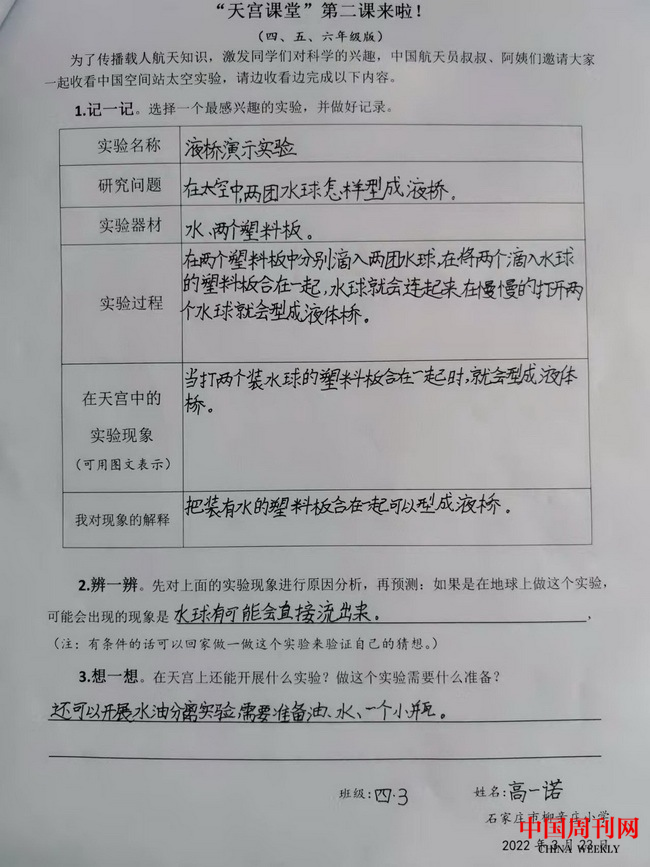 “天宫课堂”第二课来啦！
（四、五、六年级版）
为了传播载人航天知识，激发同学们对科学的兴趣，中国航天员叔叔、阿姨们邀请大家
一起收看中国空间站太空实验，请边收看边完成以下内容。
1.记一记。选择一个最感兴趣的实验，并做好记录。
实验名称 液桥演示实验
研究问题 在太空中，两团水球怎样型成液桥。
实验器材 水、两个塑料板。
实验过程
在两个塑料板中分别滴入两团水球，在将两个滴入水球
的塑料板合在一起，水球就会连起来在慢慢的打开两
个水球就会型成液体桥。
在天宫中的
实验现象
（可用图文表示）
当打两个装水球的塑料板合在一起时，就会型成液体
桥。
我对现象的解释 把装有水的塑料板合在一起可以型成液桥。
2.辨一辨。先对上面的实验现象进行原因分析，再预测：如果是在地球上做这个实验，
可能会出现的现象是 水球有可能会直接流出来。，
（注：有条件的话可以回家做一做这个实验来验证自己的猜想。）
3.想一想。在天宫上还能开展什么实验？做这个实验需要什么准备？
还可以开展水油分离实验，需要准备油、水、一个小瓶。
班级：四.3 姓名：高一诺
石家庄市柳辛庄小学
中国周刊网
2022 年 3 月 23 日
CHINA WEEKLY